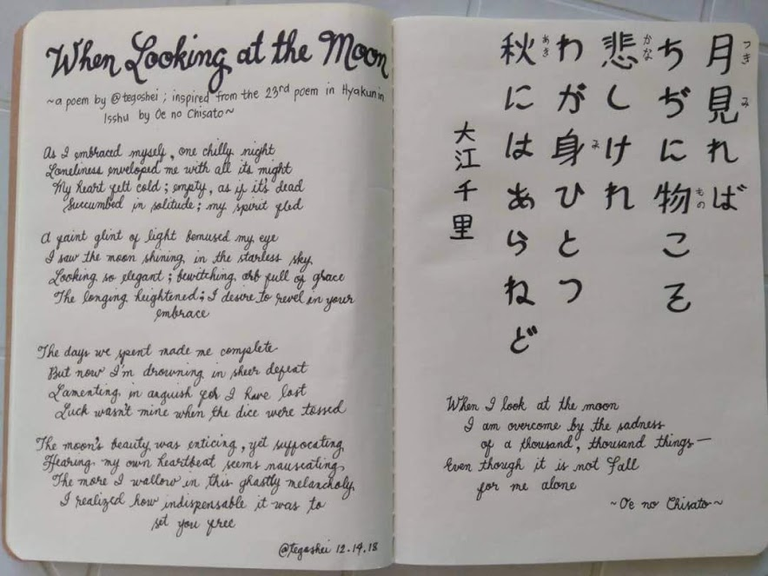 When Looking at the Moon
~a poem by @tegoshei ; inspired from the 23rd poem in Hyakunin
Isshu by Oe no Chisato~
As I embraced myself, one chilly night
Loneliness enveloped me with all its might
My heart felt cold ; empty, as if it's dead
Succumbed in solitude ; my spirit fled
A faint glint of light bemused my eye
I saw the moon shining in the starless sky
Looking so elegant ; bewitching, orb full of grace
The longing heightened ; I desire to revel in your
embrace
The days we spent made me complete
But now I'm drowning in sheer defeat
Lamenting, in anguish for I have lost
Luck wasn't mine when the dice were tossed
The moon's beauty was enticing, yet suffocating
Hearing my own heartbeat seems nauseating,
The more I wallow in this ghastly melancholy,
I realized how indispensable it was to
set you free
@tegoshei 12.14.18
月見れば
つき
み
ちぢに物こそ
もの
悲しけれ
かな
わが身ひとつ
み
秋にはあらねど
あき
大江千里
When I look at the moon
I am overcome by the sadness
of a thousand, thousand things—
Even though it is not Fall
for me alone
~Oe no Chisato~